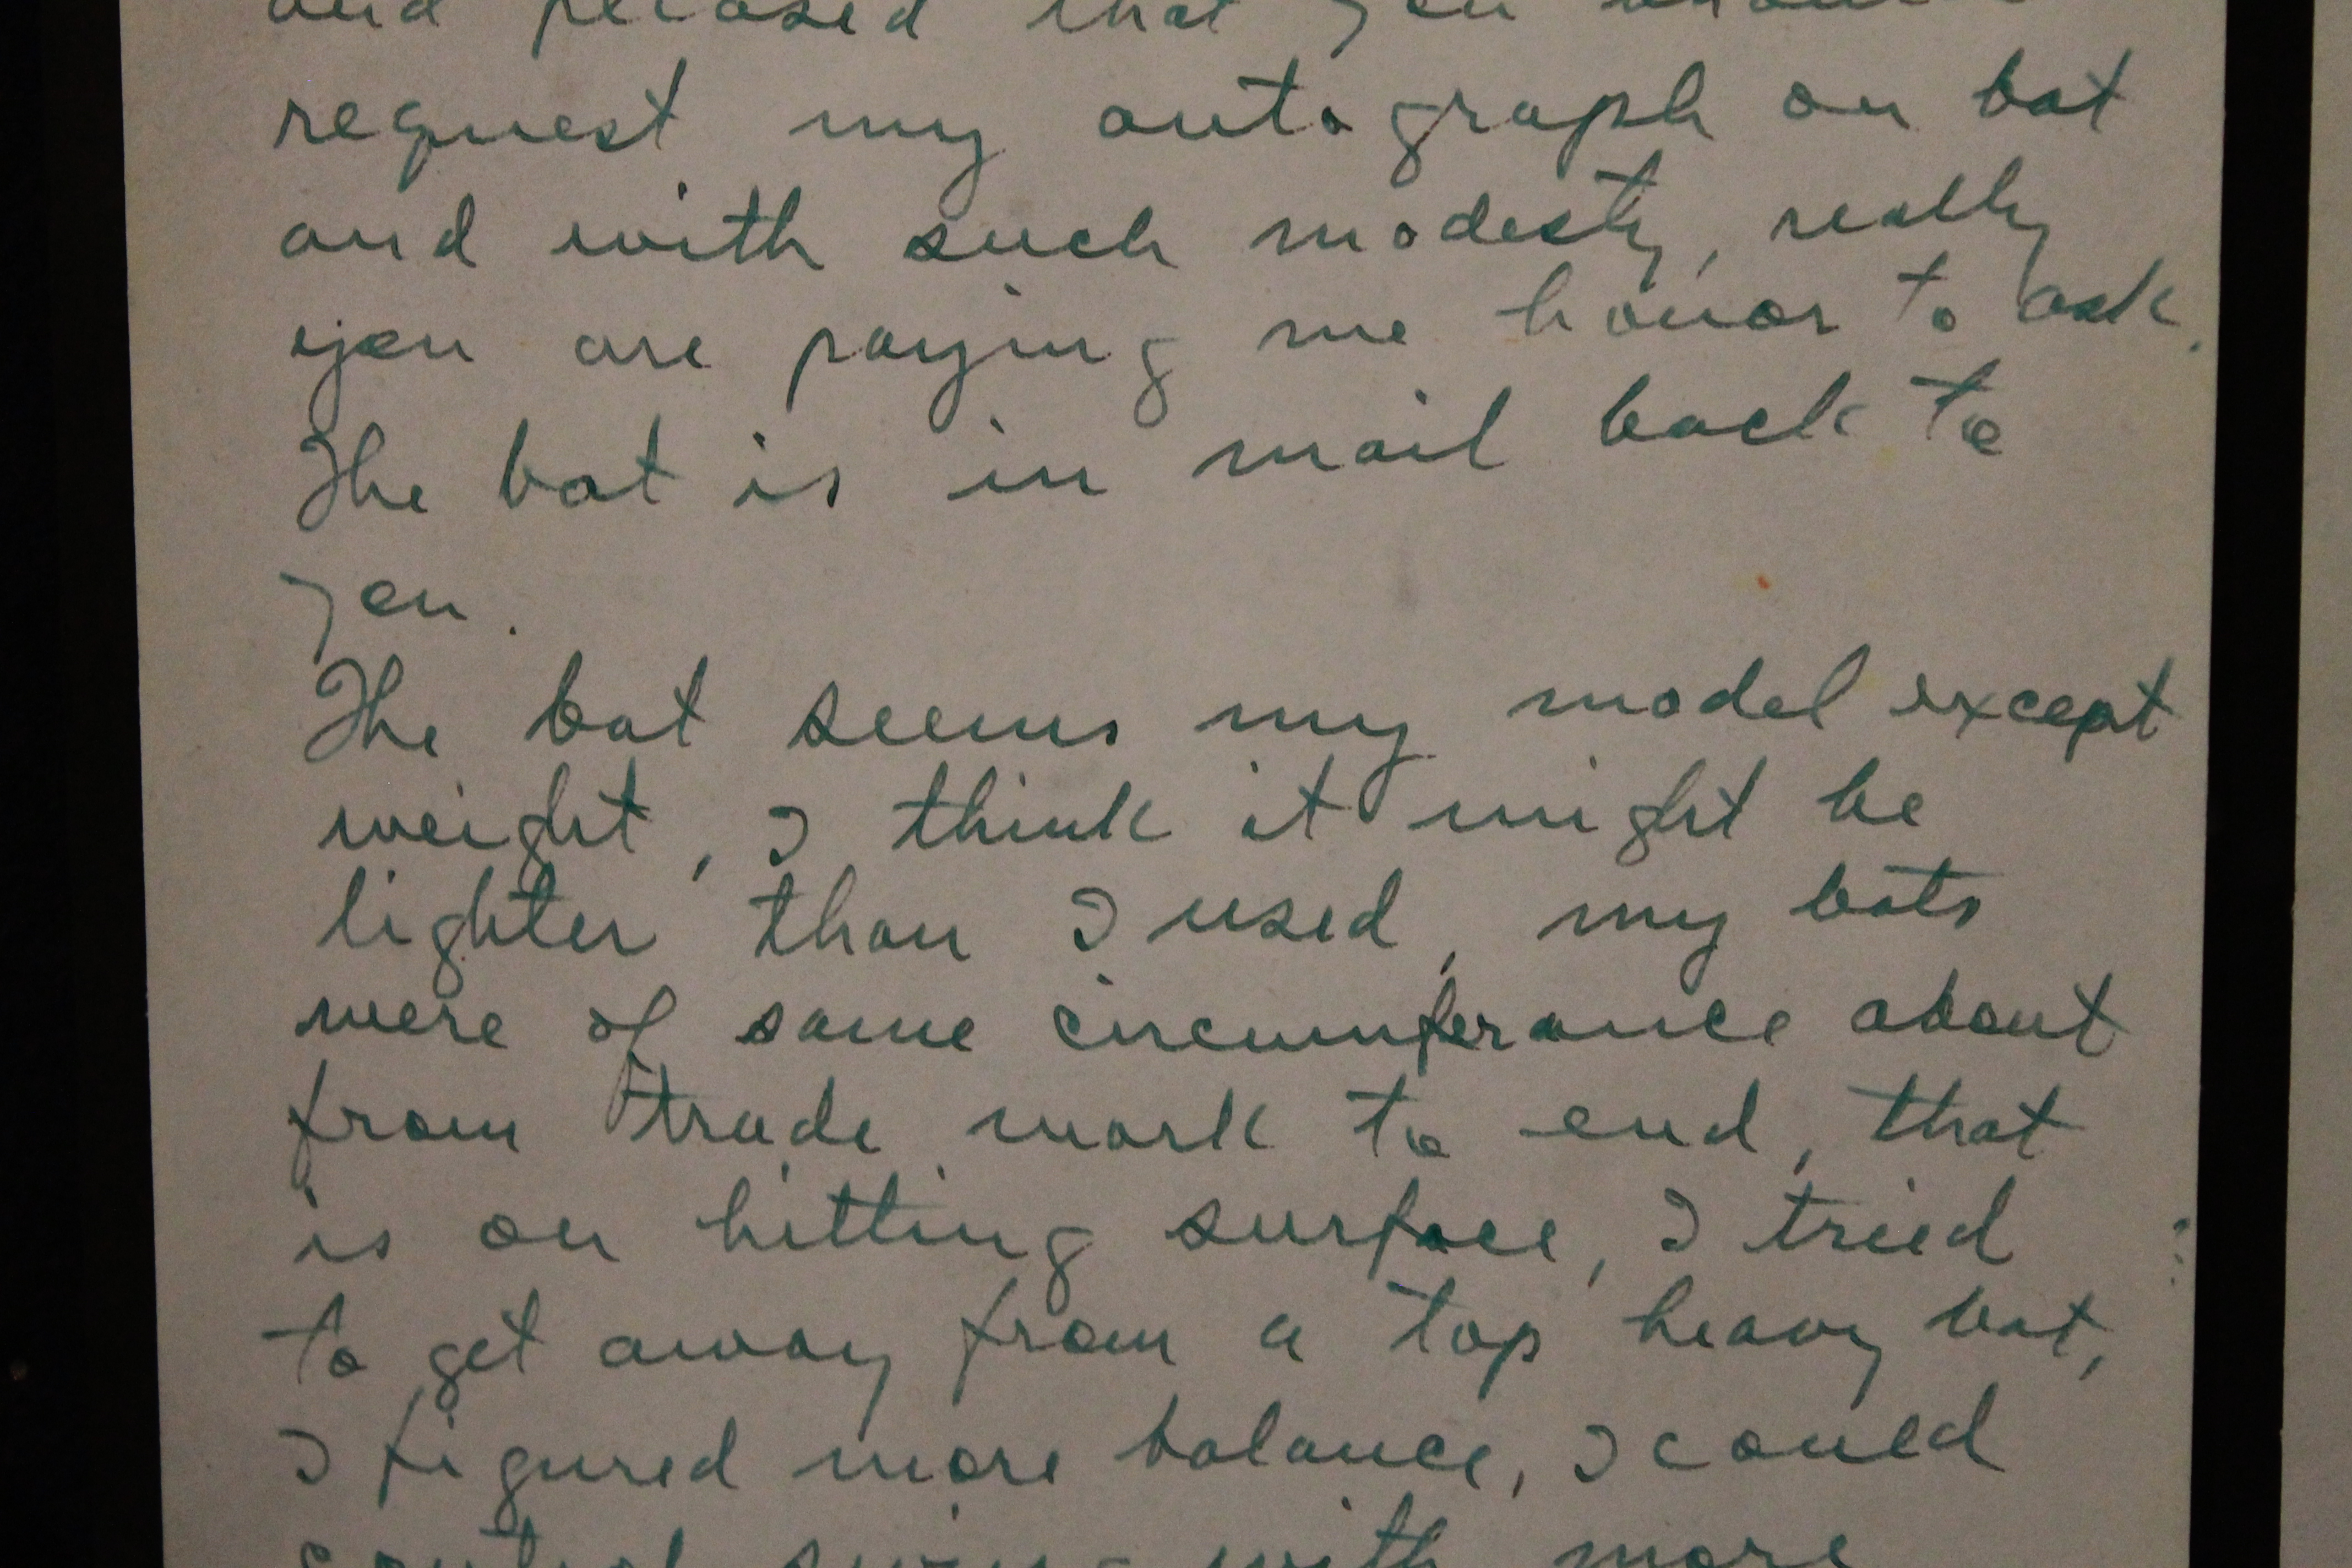 and pleased that you should
request my autograph on bat
and with such modesty, really
you are paying me honor to ask.
The bat is in mail back to
you.
The bat seems my model except
weight, I think it might be
lighter than I used, my bats
were of same circumferance about
from trade mark to end, that
is on hitting surface, I tried
to get away from a top heavy bat,
I figured more balance, I could
control swing with more